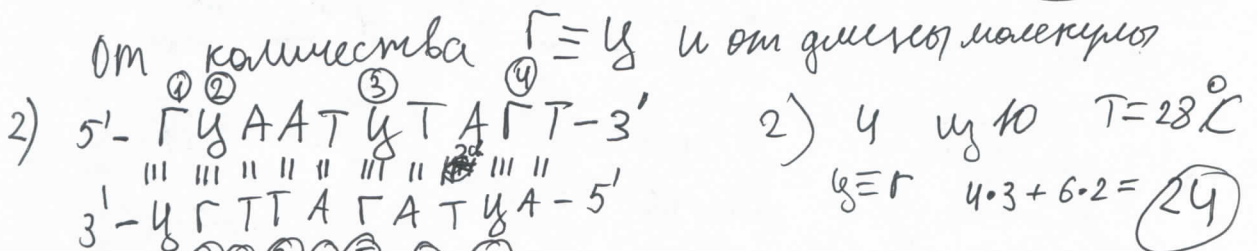 От количества Г≡Ц и от длины молекулы
① ② ③ ④
2) 5'- Г Ц А А Т Ц Т А Г Т - 3'
3' - Ц Г Т Т А Г А Т Ц А - 5'
2) 4 из 10 T = 28°C
Ц≡Г 4·3 + 6·2 = 24